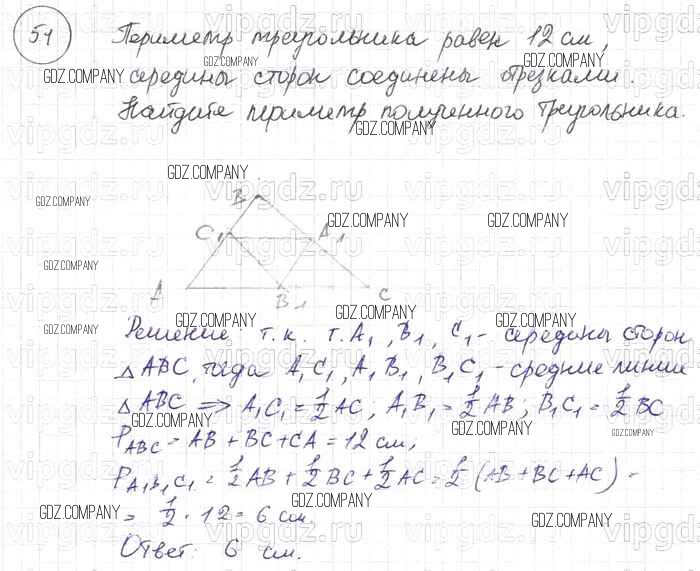 51
Периметр треугольника равен 12 см,
середины сторон соединены отрезками.
Найдите периметр полученного треугольника.
B
C₁ A₁
A B₁ C
Решение: т.к. т. A₁, B₁, C₁ - середины сторон
△ABC, тогда A₁C₁, A₁B₁, B₁C₁ - средние линии
△ABC ⇒ A₁C₁ = 1/2 AC; A₁B₁ = 1/2 AB; B₁C₁ = 1/2 BC
P_ABC = AB + BC + CA = 12 см,
P_A₁B₁C₁ = 1/2 AB + 1/2 BC + 1/2 AC = 1/2 (AB + BC + AC) =
= 1/2 · 12 = 6 см.
Ответ: 6 см.
GDZ.COMPANY
vipgdz.ru